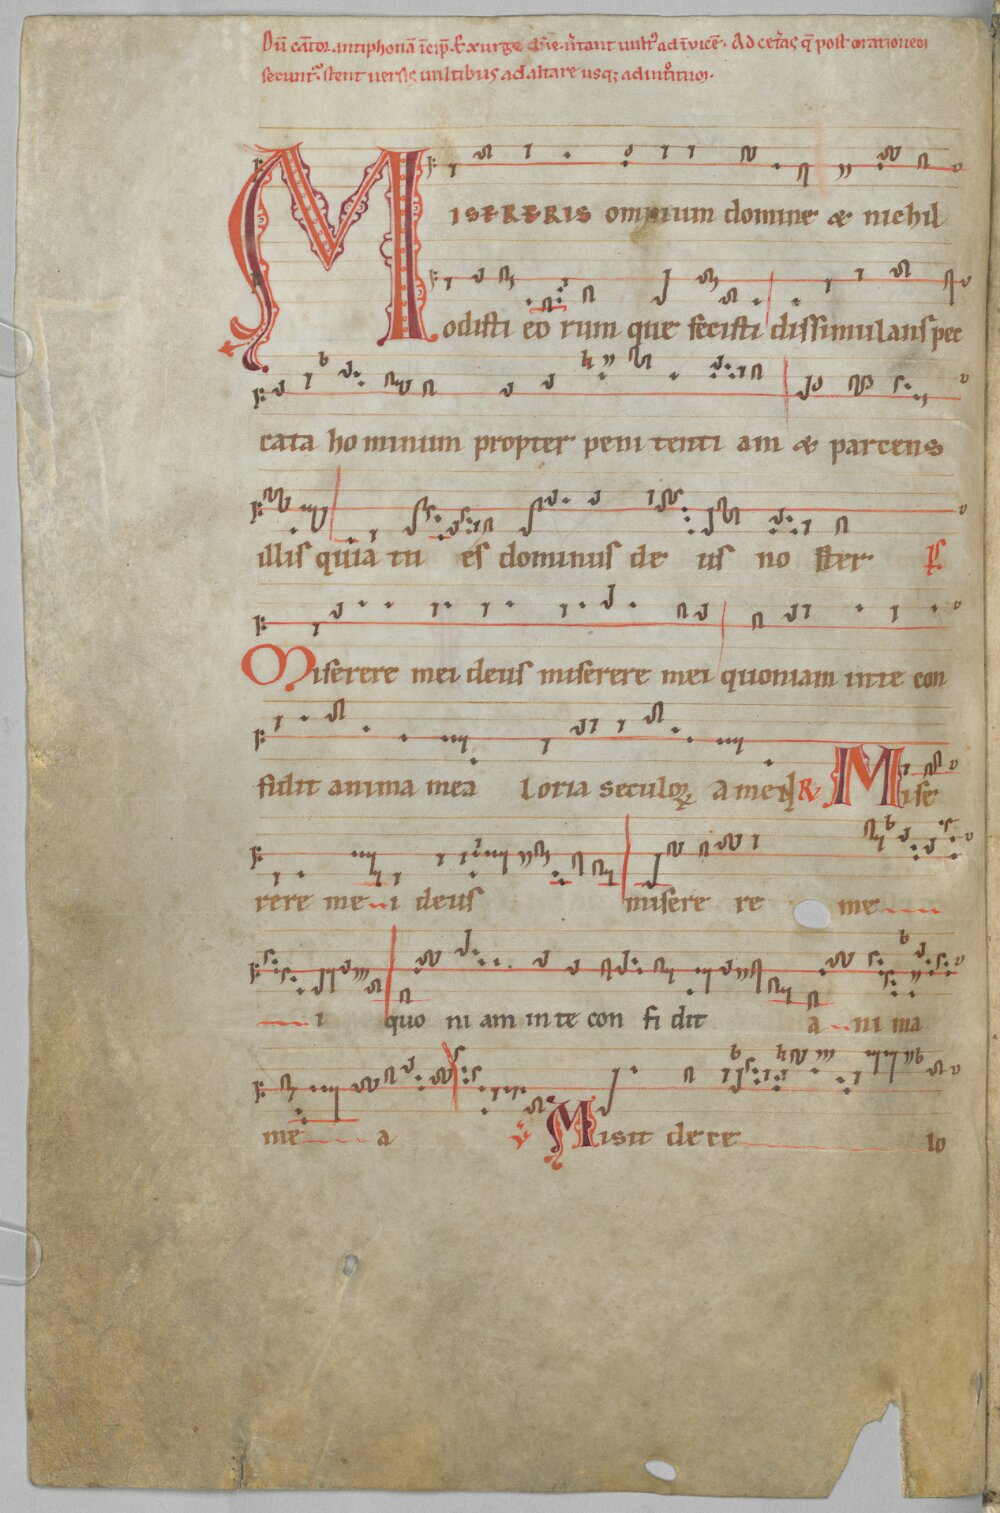 Dū cātor antiphonā īcip̄. Exurge dn̄e. u̇tant uultꝰ ad īuicē. Ad cet̄as q̄ post orationem
secunt᷑. stent uersis uultibus ad altare usq; ad introituō.
MISERERIS omnium domine & nichil
odisti eo rum que fecisti dissimulans pec
cata ho minum propter peni tenti am & parcens
illis quia tu es dominus de us no ster P̄
Miserere mei deus miserere mei quoniam in te con
fidit anima mea loria seculoꝝ amen R̄ Mise
rere me i deus misere re me
i quo ni am in te con fi dit a ni ma
me a V̄ Misit de ce lo